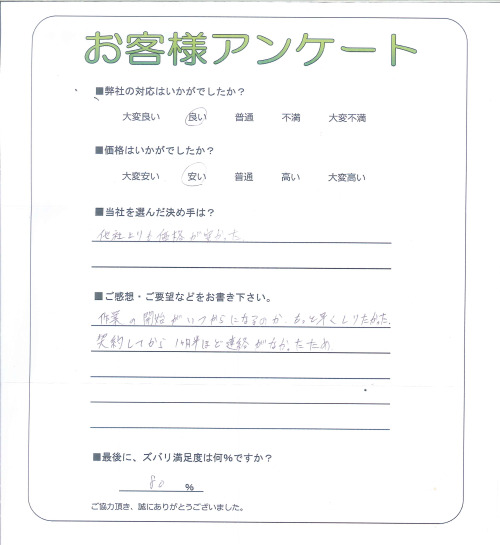 お客様アンケート
■弊社の対応はいかがでしたか?
大変良い 良い 普通 不満 大変不満
■価格はいかがでしたか?
大変安い 安い 普通 高い 大変高い
■当社を選んだ決め手は?
他社よりも価格が安かった。
■ご感想・ご要望などをお書き下さい。
作業の開始がいつからになるのか、もっと早くしりたかった。
契約してから1ヶ月半ほど連絡がなかったため
■最後に、ズバリ満足度は何%ですか?
80 %
ご協力頂き、誠にありがとうございました。